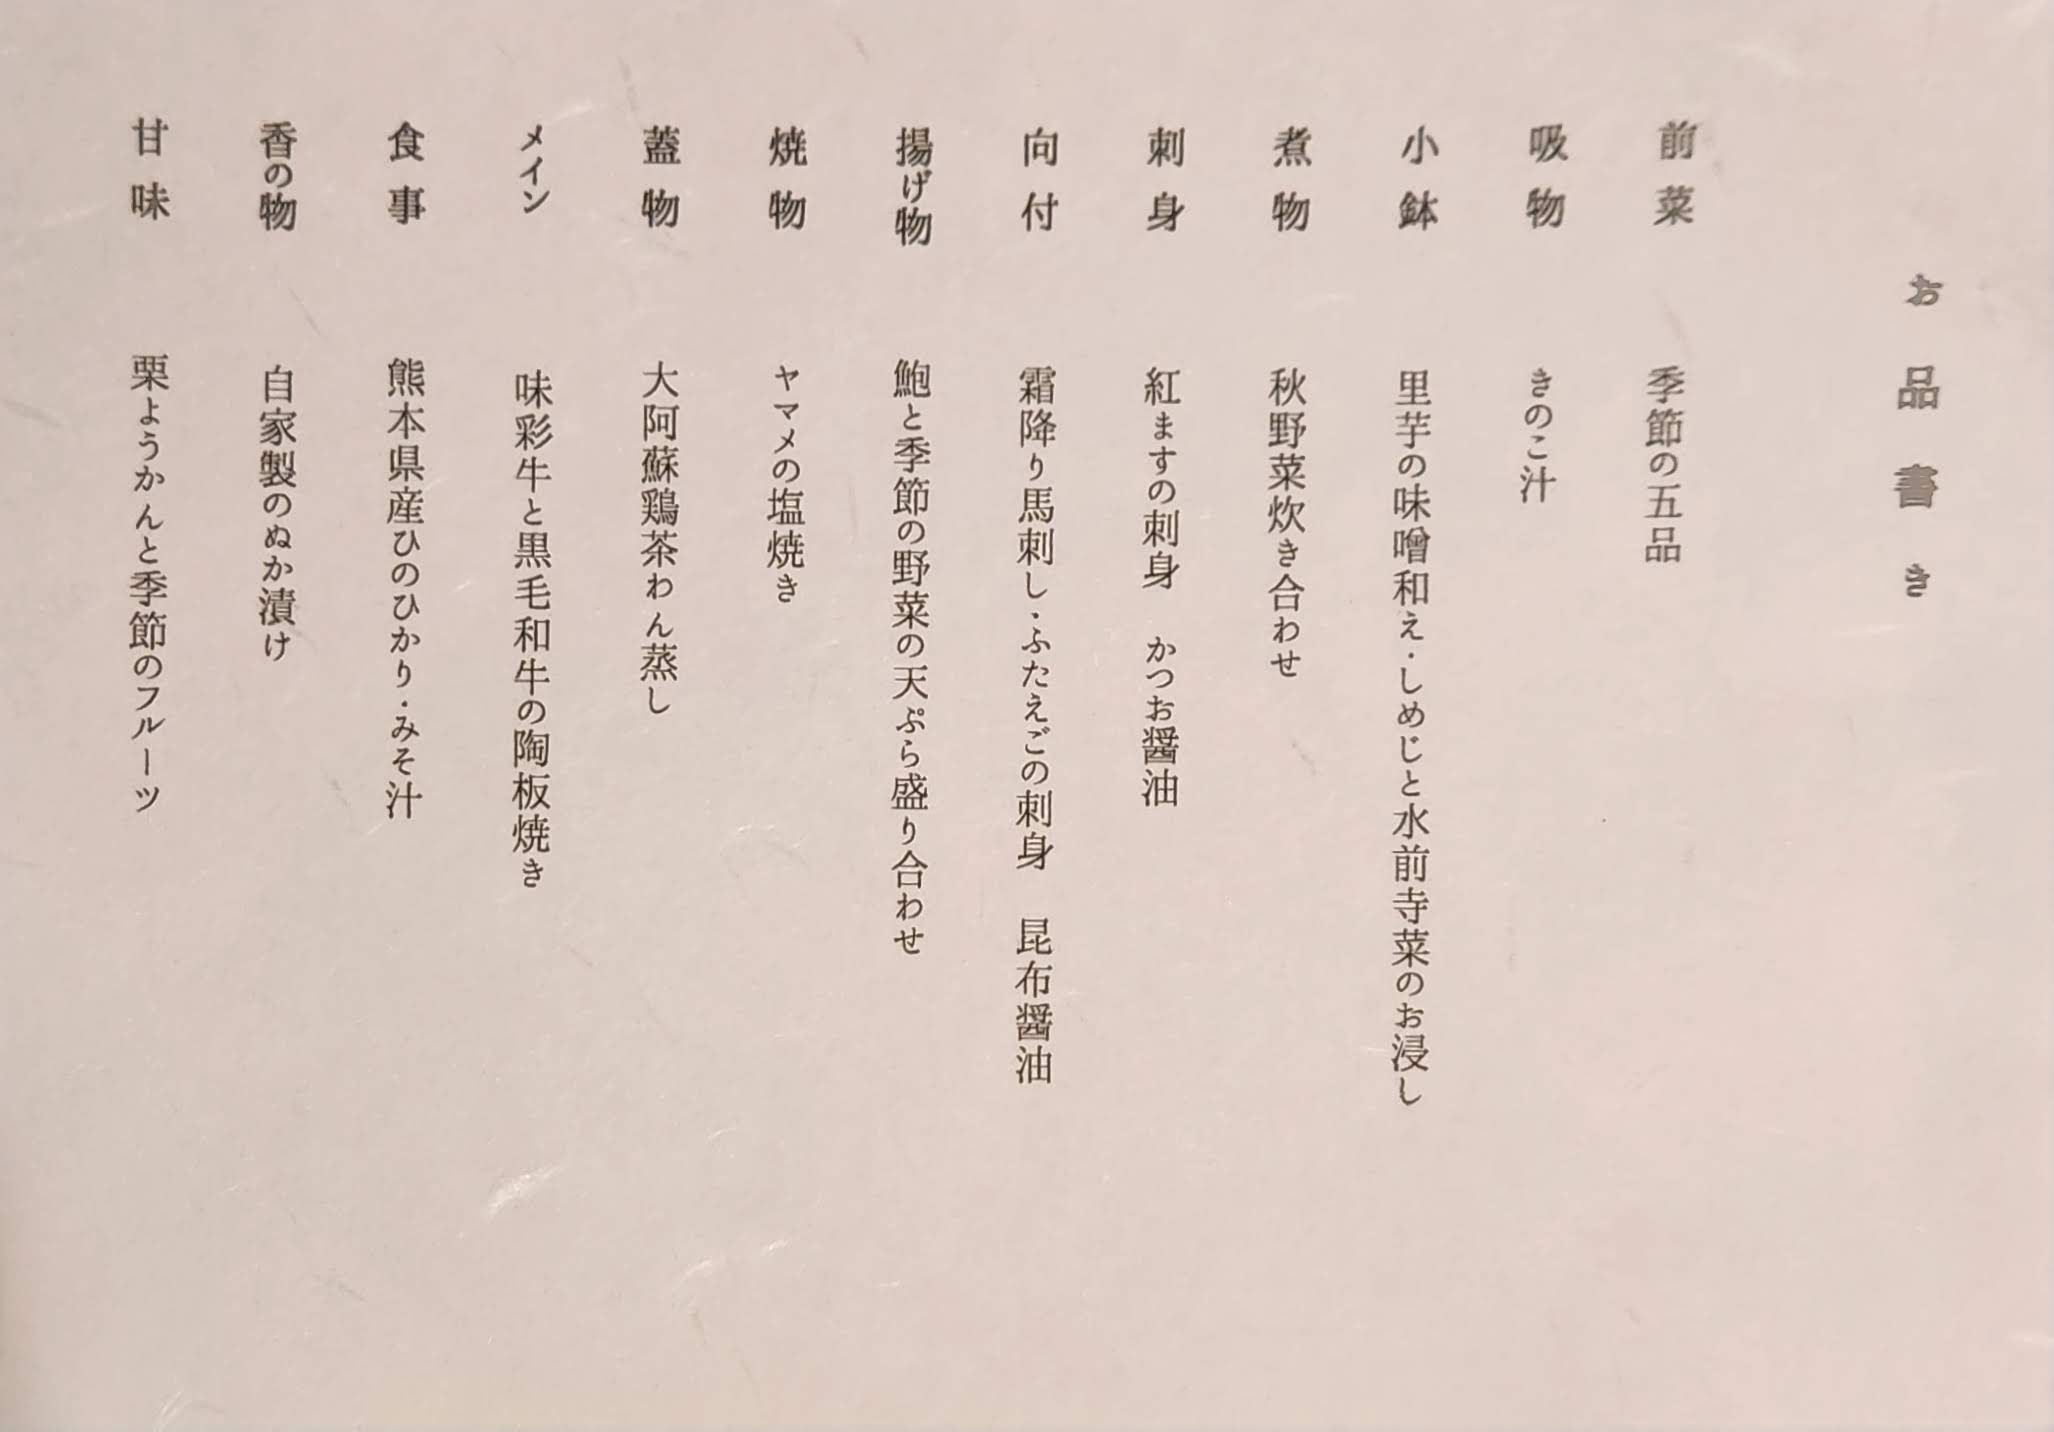 お品書き
前菜　季節の五品
吸物　きのこ汁
小鉢　里芋の味噌和え・しめじと水前寺菜のお浸し
煮物　秋野菜炊き合わせ
刺身　紅ますの刺身　かつお醤油
向付　霜降り馬刺し・ふたえごの刺身　昆布醤油
揚げ物　鮑と季節の野菜の天ぷら盛り合わせ
焼物　ヤマメの塩焼き
蓋物　大阿蘇鶏茶わん蒸し
メイン　味彩牛と黒毛和牛の陶板焼き
食事　熊本県産ひのひかり・みそ汁
香の物　自家製のぬか漬け
甘味　栗ようかんと季節のフルーツ